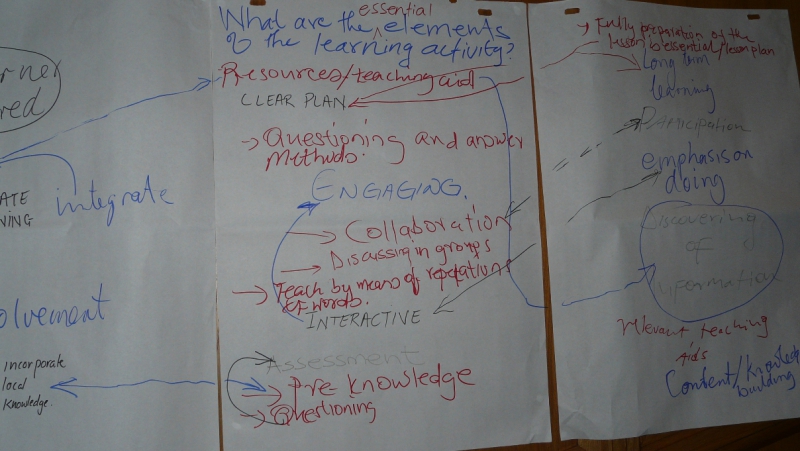 rner
red
ATE
NING
integrate
olvement
incorporate
local
knowledge.
What are the essential elements
of the learning activity?
Resources/teaching aid
CLEAR PLAN
→ Questioning and answer
methods.
ENGAGING.
→ Collaboration
→ Discussing in groups
→ Teach by means of repetations
of words.
INTERACTIVE
Assessment
→ Pre knowledge
→ Questioning
→ Fully preparation of the
lesson is essential/lesson plan
Long term
learning
PARTICIPATION
emphasis on
doing
Discovering
of
information
relevant teaching
aids
Content/knowledge
building